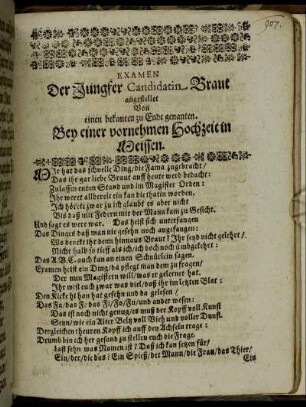 907.
EXAMEN
Der Jungfer Candidatin Braut
angestellet
Von
einen bekanten zu Ende genanten.
Bey einer vornehmen Hochzeit in
Meissen.
hat das schnelle Ding / die Fama zugebracht /
Das ihr gar liebe Braut auff heute werd bedacht:
Zulassen enten Stand und im Magister Orden:
Ihr weret allbereit ein Candidatin worden.
Ich hörete zwar zu ich glaubt es aber nicht
Biß daß mit Federn mir der Mann kam zu Gesicht.
Und sagt es were war. Das heist sich unterfangen
Das Dinges daß man nie gesehn noch angefangen.
Wo denckt ihr denn hinnaus Braut? Ihr seyd nicht gelehrt /
Nicht halb so fleist als ich / ich doch noch
Das A.B.C. auch kan an einen Schnürlein sagen.
Examen heist ein Ding / da pflegt man den zu fragen /
Der nun Magistern will / was er gelernet hat.
Ihr wist euch zwar was viel / daß ihr im letzten Blat
Den Kickel han hat gesehn und da gelesen /
Das Fa / das F; das Fi / Fo / Fu / und ander wesen:
Das ist noch nicht genug / es muß der Kopff voll Kunst
Seyn / wie ein Alter Beltz voll Vieh und voller Dunst.
Dergleichen theuren Kopff ich auff den Achseln trage:
Drumb bin ich her gesand zu stellen euch die Frage.
last sehn was Nomen ist? Daß ich kan setzen für /
Ein / der / die / das / Ein Spieß / der Mann / die Frau / das Thier /
Ein